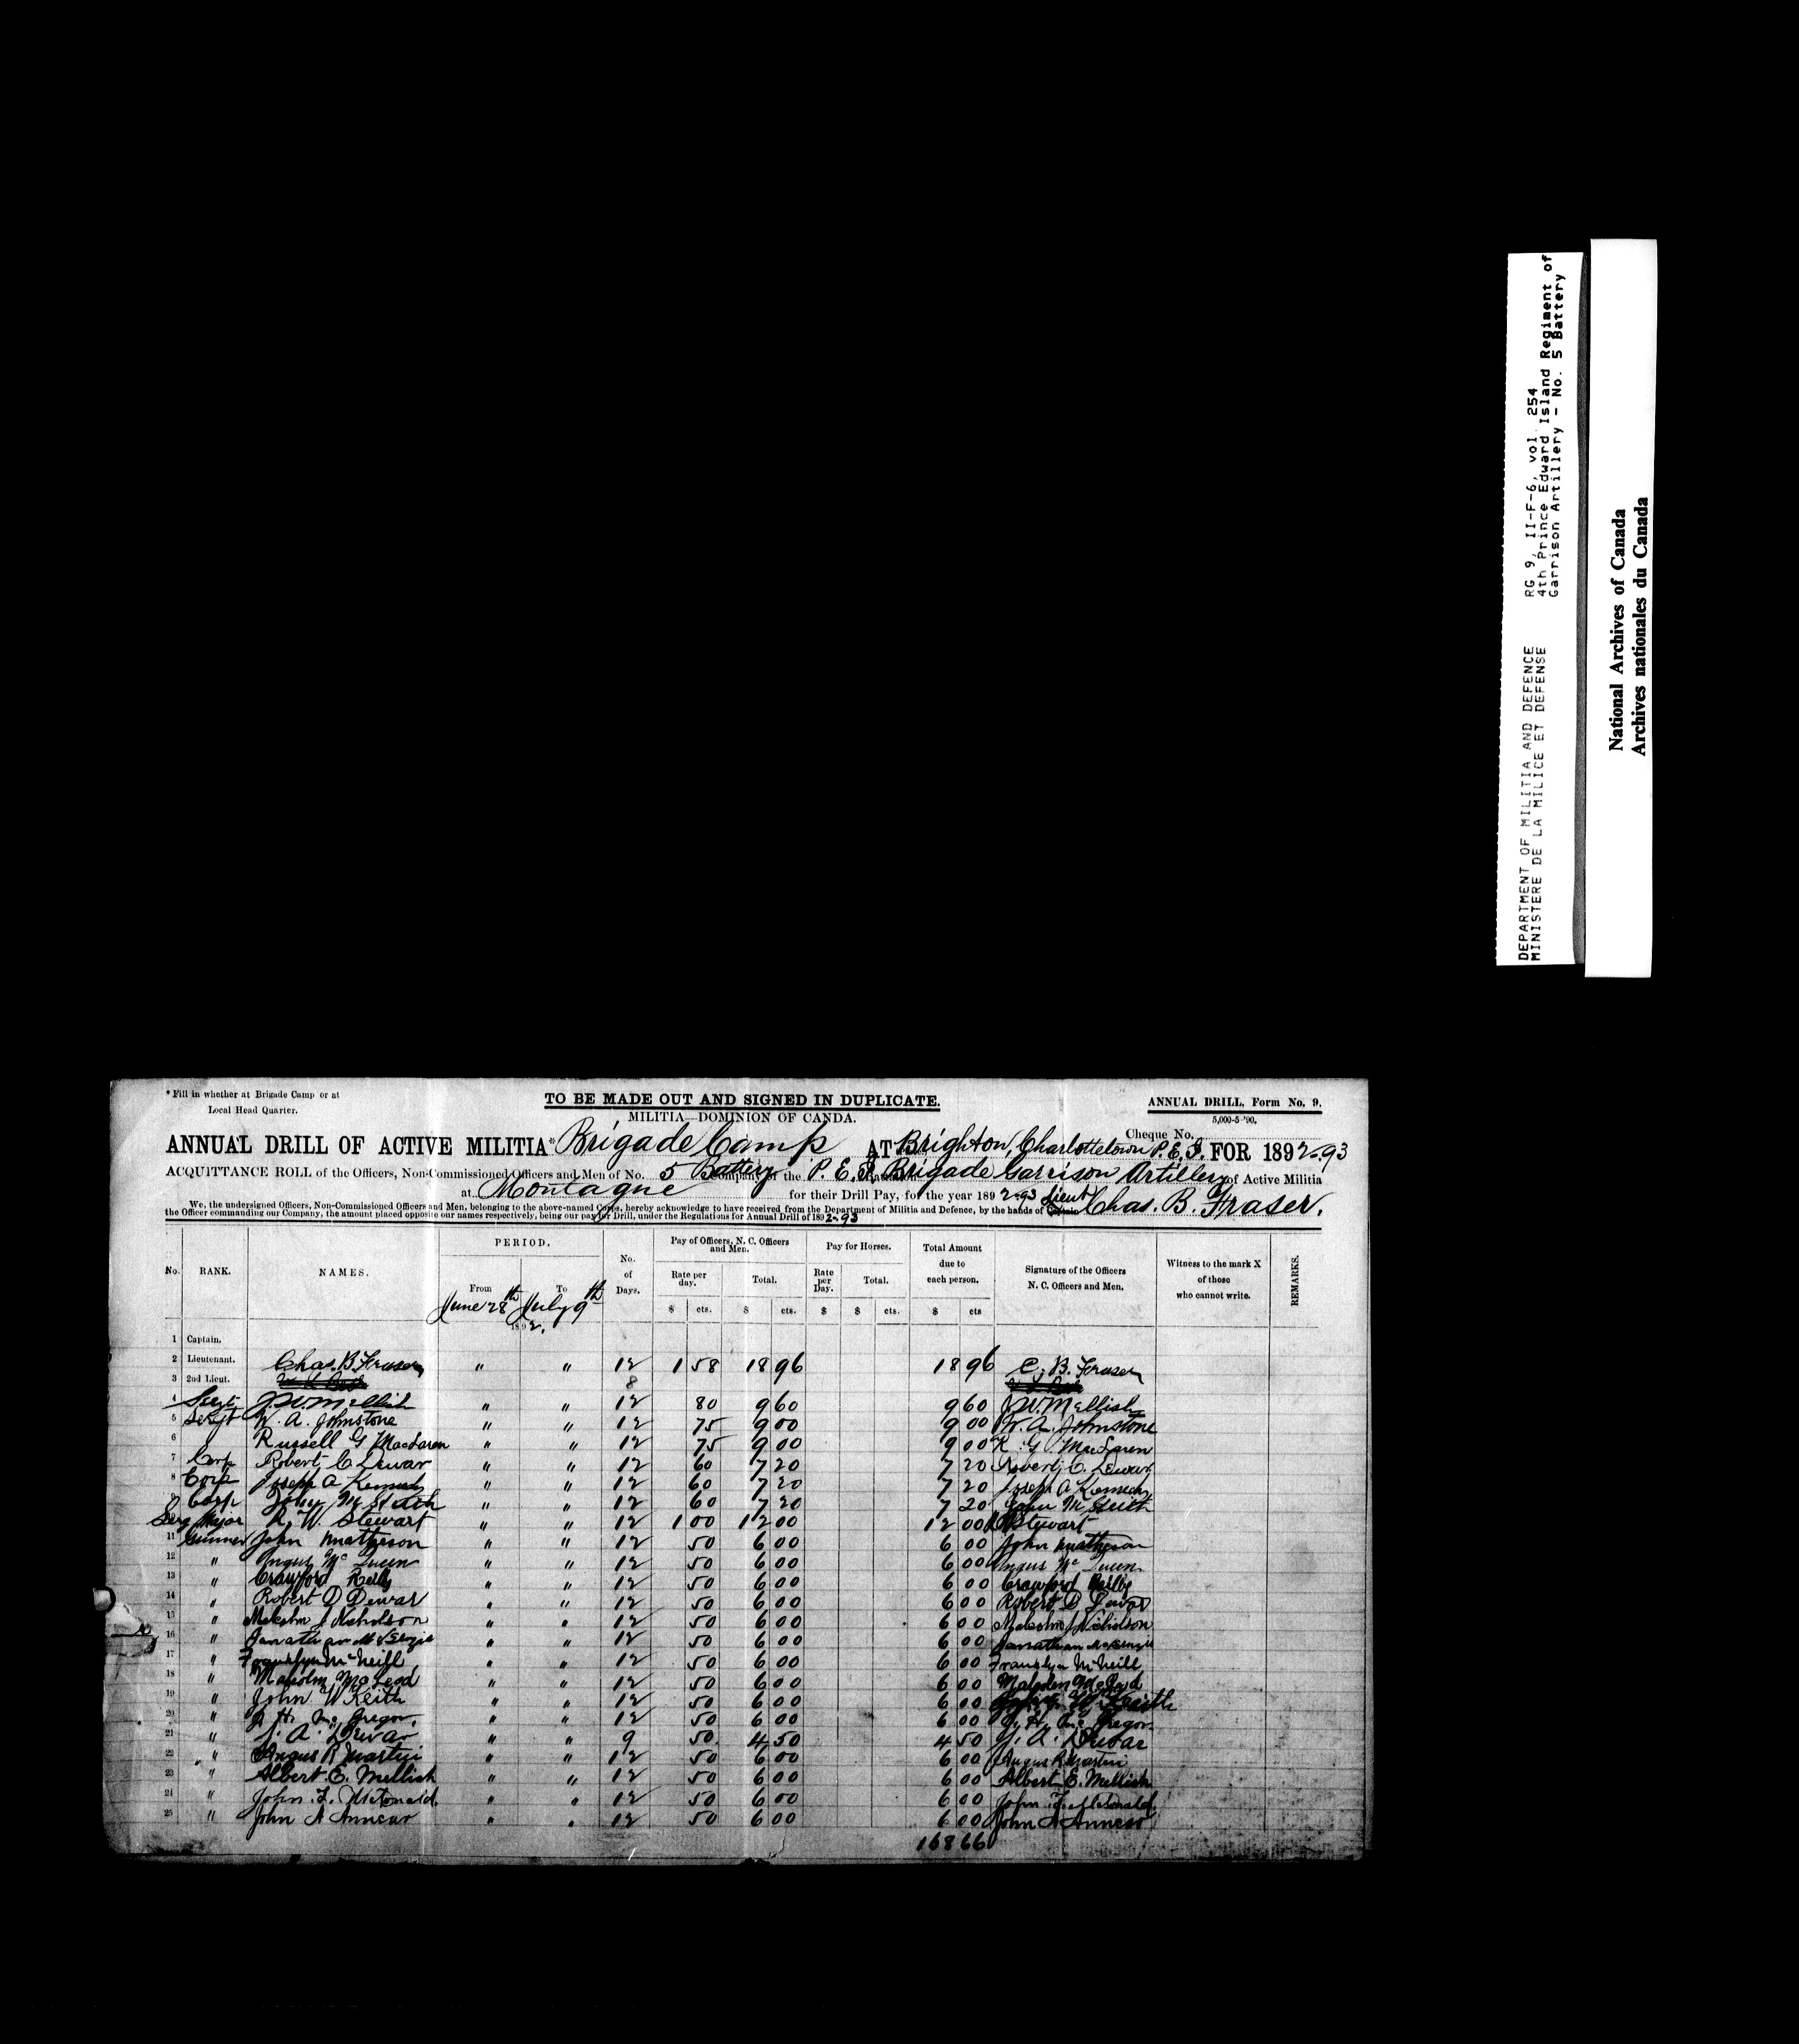 DEPARTMENT OF MILITIA AND DEFENCE RG 9, II-F-6, vol. 254
MINISTERE DE LA MILICE ET DEFENSE 4th Prince Edward Island Regiment of
Garrison Artillery - No. 5 Battery
National Archives of Canada
Archives nationales du Canada
* Fill in whether at Brigade Camp or at
Local Head Quarter.
TO BE MADE OUT AND SIGNED IN DUPLICATE.
MILITIA—DOMINION OF CANDA.
ANNUAL DRILL, Form No. 9.
5,000-5-'90.
Cheque No.
ANNUAL DRILL OF ACTIVE MILITIA* Brigade Camp AT Brighton, Charlottetown P.E.I. FOR 1892-93
ACQUITTANCE ROLL of the Officers, Non-Commissioned Officers and Men of No. 5 Battery Company of the P. E. I. Brigade Garrison Artillery of Active Militia
at Montague for their Drill Pay, for the year 1892-93 Lieut Chas. B. Fraser.
We, the undersigned Officers, Non-Commissioned Officers and Men, belonging to the above-named Corps, hereby acknowledge to have received from the Department of Militia and Defence, by the hands of
the Officer commanding our Company, the amount placed opposite our names respectively, being our pay for Drill, under the Regulations for Annual Drill of 1892-93
No. RANK. NAMES. PERIOD. No. of Days. Pay of Officers, N. C. Officers and Men. Pay for Horses. Total Amount due to each person. Signature of the Officers N. C. Officers and Men. Witness to the mark X of those who cannot write. REMARKS.
From To Rate per day. Total. Rate per Day. Total.
June 28th July 9th
1892.
$ cts. $ cts. $ $ cts. $ cts
1 Captain.
2 Lieutenant. Chas. B. Fraser " " 12 1 58 18 96 18 96 C. B. Fraser
3 2nd Lieut. 8
4 Sergt J. W. Mellish " " 12 80 9 60 9 60 J. W. Mellish
5 Sergt W. A. Johnstone " " 12 75 9 00 9 00 W. A. Johnstone
6 Russell G MacLaren " " 12 75 9 00 9 00 R. G. MacLaren
7 Corp Robert C Dewar " " 12 60 7 20 7 20 Robert C. Dewar
8 Corp Joseph A Kennedy " " 12 60 7 20 7 20 Joseph A Kennedy
9 Corp John " " 12 60 7 20 7 20 John
Serg Major R. W. Stewart " " 12 1 00 12 00 12 00 Stewart
11 Gunner John Matheson " " 12 50 6 00 6 00 John Matheson
12 " Angus Mc Queen " " 12 50 6 00 6 00 Angus Mc Queen
13 " Crawford Reilly " " 12 50 6 00 6 00 Crawford Reilly
14 " Robert D Dewar " " 12 50 6 00 6 00 Robert D Dewar
15 " Malcolm J Nicholson " " 12 50 6 00 6 00 Malcolm J Nicholson
16 " Jonathan McKenzie " " 12 50 6 00 6 00 Jonathan McKenzie
17 " Franklyn McNeill " " 12 50 6 00 6 00 Franklyn McNeill
18 " Malcolm McLeod " " 12 50 6 00 6 00 Malcolm McLeod
19 " John W Keith " " 12 50 6 00 6 00 John W Keith
20 " J. H. McGregor. " " 12 50 6 00 6 00 J. H. McGregor
21 " J. A. Dewar " " 9 50 4 50 4 50 J. A. Dewar
22 " Angus R Martin " " 12 50 6 00 6 00 Angus R Martin
23 " Albert E. Mellish " " 12 50 6 00 6 00 Albert E. Mellish
24 " John F. McDonald " " 12 50 6 00 6 00 John F. McDonald
25 " John A Annear " " 12 50 6 00 6 00 John A Annear
168 66